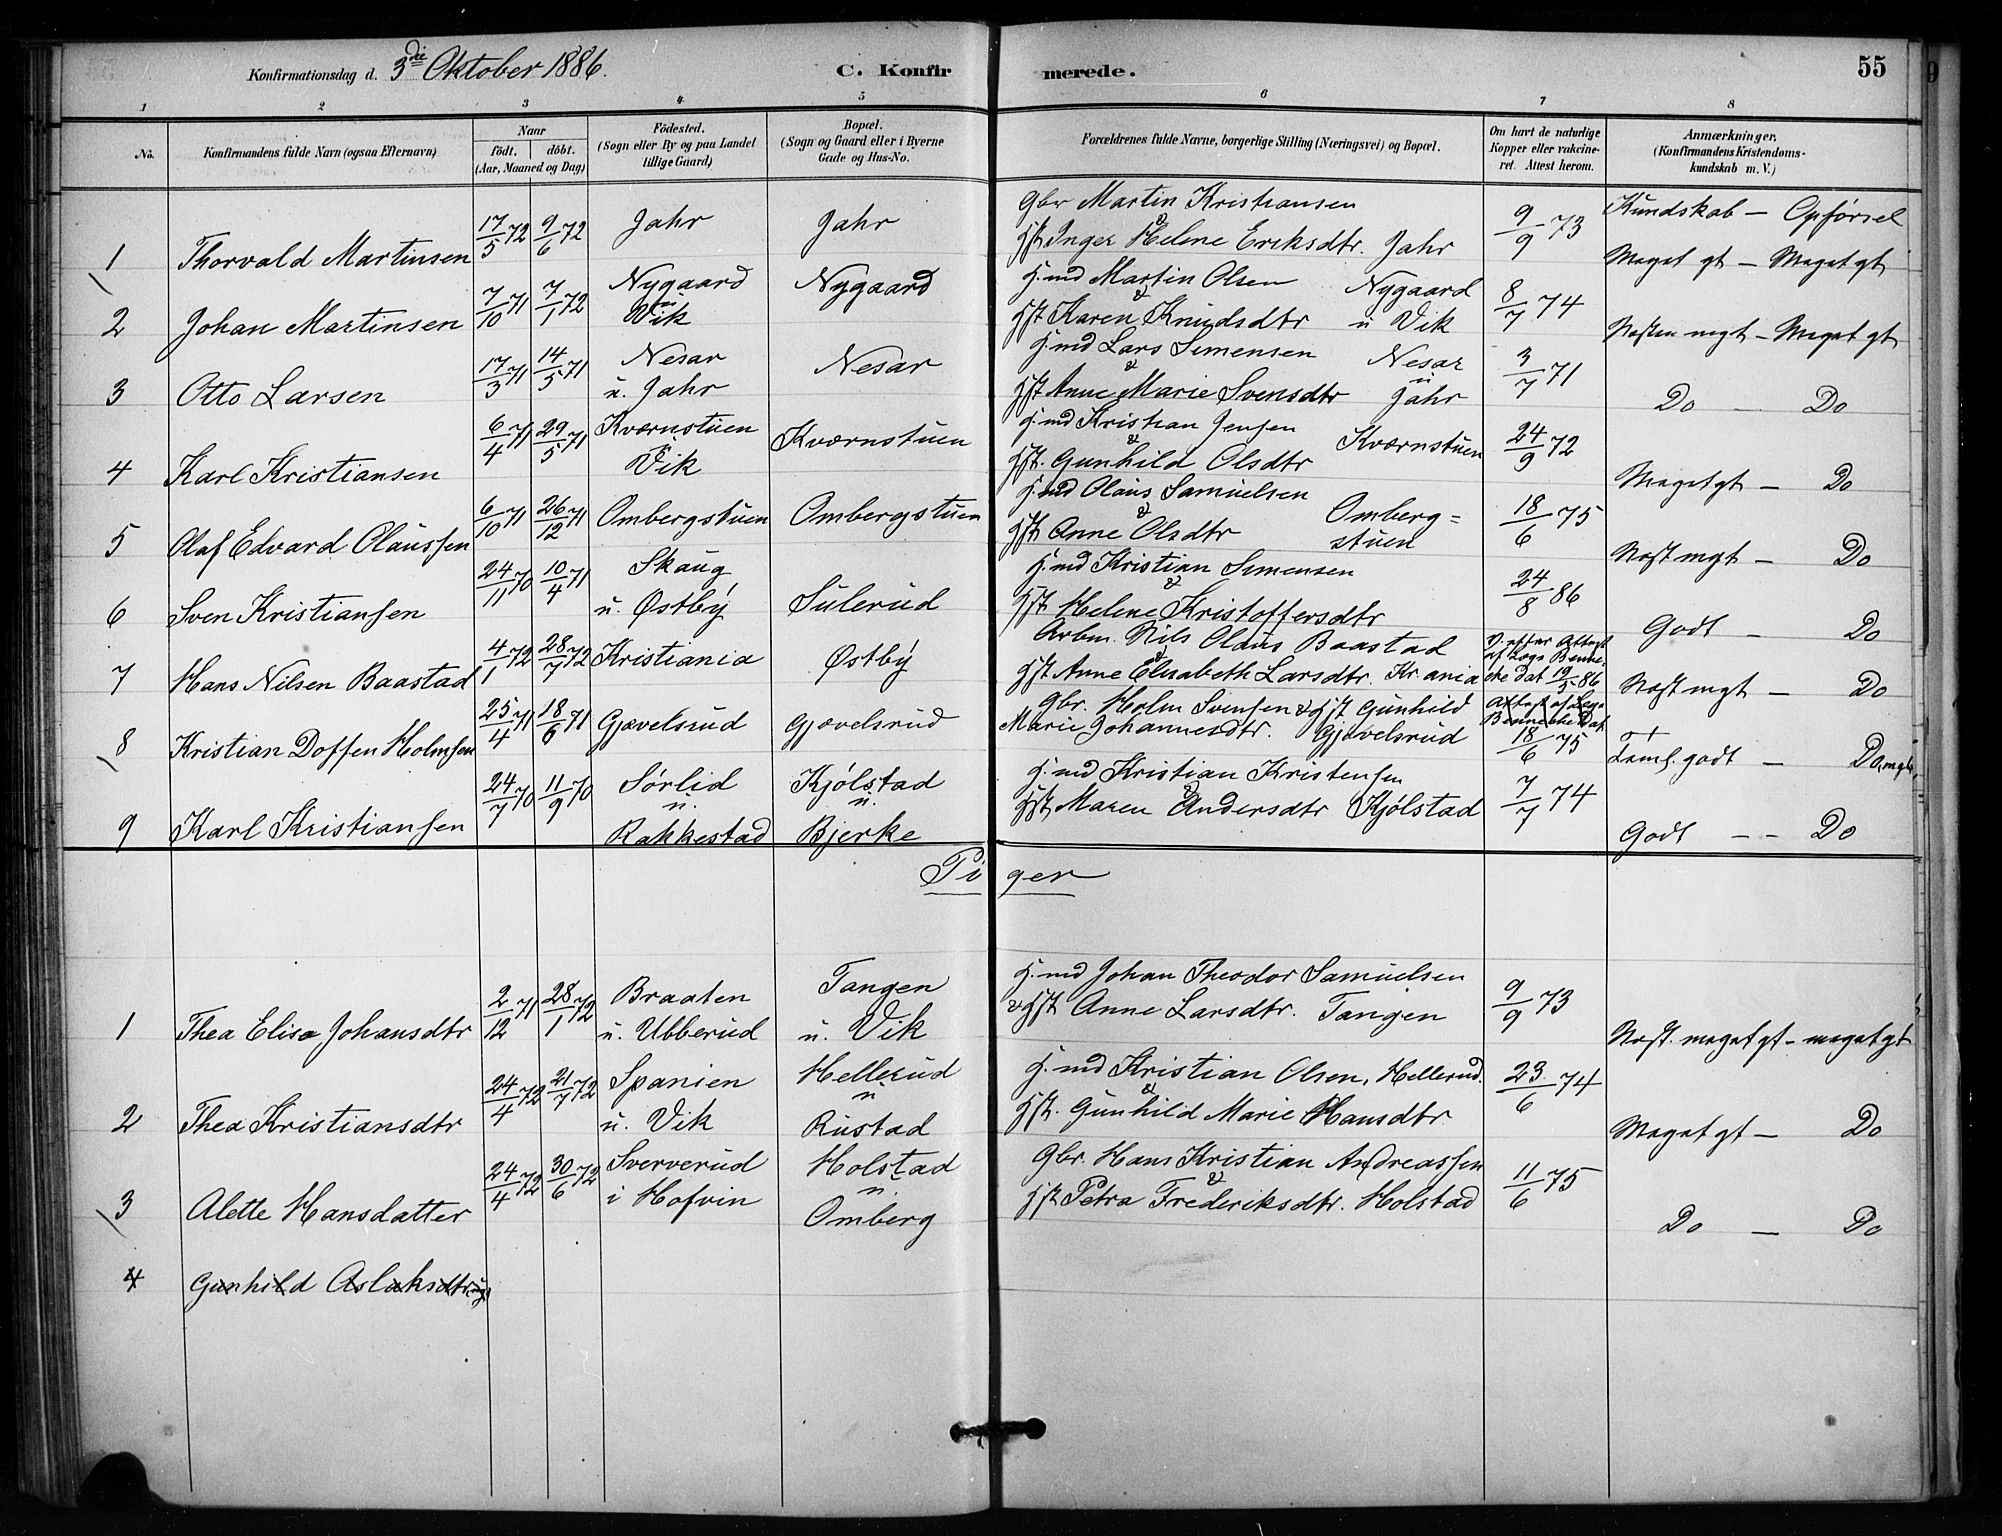 Konfirmationsdag d. 3die Oktober 1886.
C. Konfirmerede.
55
1 2 3 4 5 6 7 8
No.
Konfirmandens fulde Navn (ogsaa Efternavn)
Naar
födt. döbt.
(Aar, Maaned og Dag)
Födested.
(Sogn eller By og paa Landet
tillige Gaard)
Bopæl.
(Sogn og Gaard eller i Byerne
Gade og Hus-No.
Forældrenes fulde Navne, borgerlige Stilling (Næringsvei) og Bopæl.
Om havt de naturlige
Kopper eller vakcine-
ret. Attest herom.
Anmærkninger,
(Konfirmandens Kristendoms-
kundskab m. V.)
Kundskab – Opførsel
1 Thorvald Martinsen 17/5 72 9/6 72 Jahr Jahr
Gbr Martin Kristiansen
& Hst Inger Helene Eriksdtr. Jahr 9/9 73
Meget gt – Meget gt
2 Johan Martinsen 7/10 71 7/1 72 Nygaard
u Vik
Nygaard
H.md Martin Olsen Nygaard
& Hst Karen Knudsdtr u Vik 8/7 74
Næsten mgt – Meget gt
3 Otto Larsen 17/3 71 14/5 71 Nesar
u. Jahr
Nesar
H.md Lars Simensen Nesar
& Hst Anne Marie Svensdtr u Jahr 3/7 71
Do – Do
4 Karl Kristiansen 6/4 71 29/5 71 Kværnstuen
u Vik
Kværnstuen
H.md Kristian Jensen Kværnstuen
& Hst. Gunhild Olsdtr 24/9 72
Meget gt – Do
5 Olaf Edvard Olaussen 6/10 71 26/12 71 Ombergstuen Ombergstuen
H.md Olaus Samuelsen Omberg=
& Hst Anne Olsdtr stuen 18/6 75
Næst mgt – Do
6 Sven Kristiansen 24/11 70 10/4 71 Skaug
u. Østby
Sulerud
H.md Kristian Simensen
& Hst Helene Kristoffersdtr 24/8 86
Godt – Do
7 Hans Nilsen Baastad 4/1 72 28/7 72 Kristiania Østby
Arbm. Nils Olaus Baastad
& Hst Anne Elisabeth Larsdtr. Kr.ania
V. efter Attest
af Læge Benne-
che dat 19/5 86
Næst mgt – Do
8 Kristian Doffen Holmsen 25/4 71 18/6 71 Gjævelsrud Gjævelsrud
Gbr. Holm Svensen & Hst Gunhild
Marie Johannesdtr. Gjævelsrud
Attest af Læge
Benneche Dat.
18/6 75
Taml. godt – Do, mgt
9 Karl Kristiansen 24/7 70 11/9 70 Sørlid
u.
Rakkestad
Kjølstad
u.
Bjerke
H.md Kristian Kristensen
& Hst Maren Andersdtr Kjølstad 7/7 74
Godt – – Do
Piger
1 Thea Elise Johansdtr 2/12 71 28/1 72 Braaten
u. Ubberud
Tangen
u. Vik
H.md Johan Theodor Samuelsen
& Hst Anne Larsdtr. Tangen 9/9 73
Næst. meget gt – meget gt
2 Thea Kristiansdtr 24/4 72 21/7 72 Spanien
u. Vik
Hellerud
u
Rustad
H.md Kristian Olsen, Hellerud.
& Hst. Gunhild Marie Hansdtr 23/6 74
Meget gt – Do
3 Alette Hansdatter 24/4 72 30/6 72 Sververud
i Hofvin
Holstad
u.
Omberg
Gbr. Hans Kristian Andreassen
& Hst Petra Frederiksdtr. Holstad 11/6 75
Do – Do
4 Gunhild Aslaksdtr